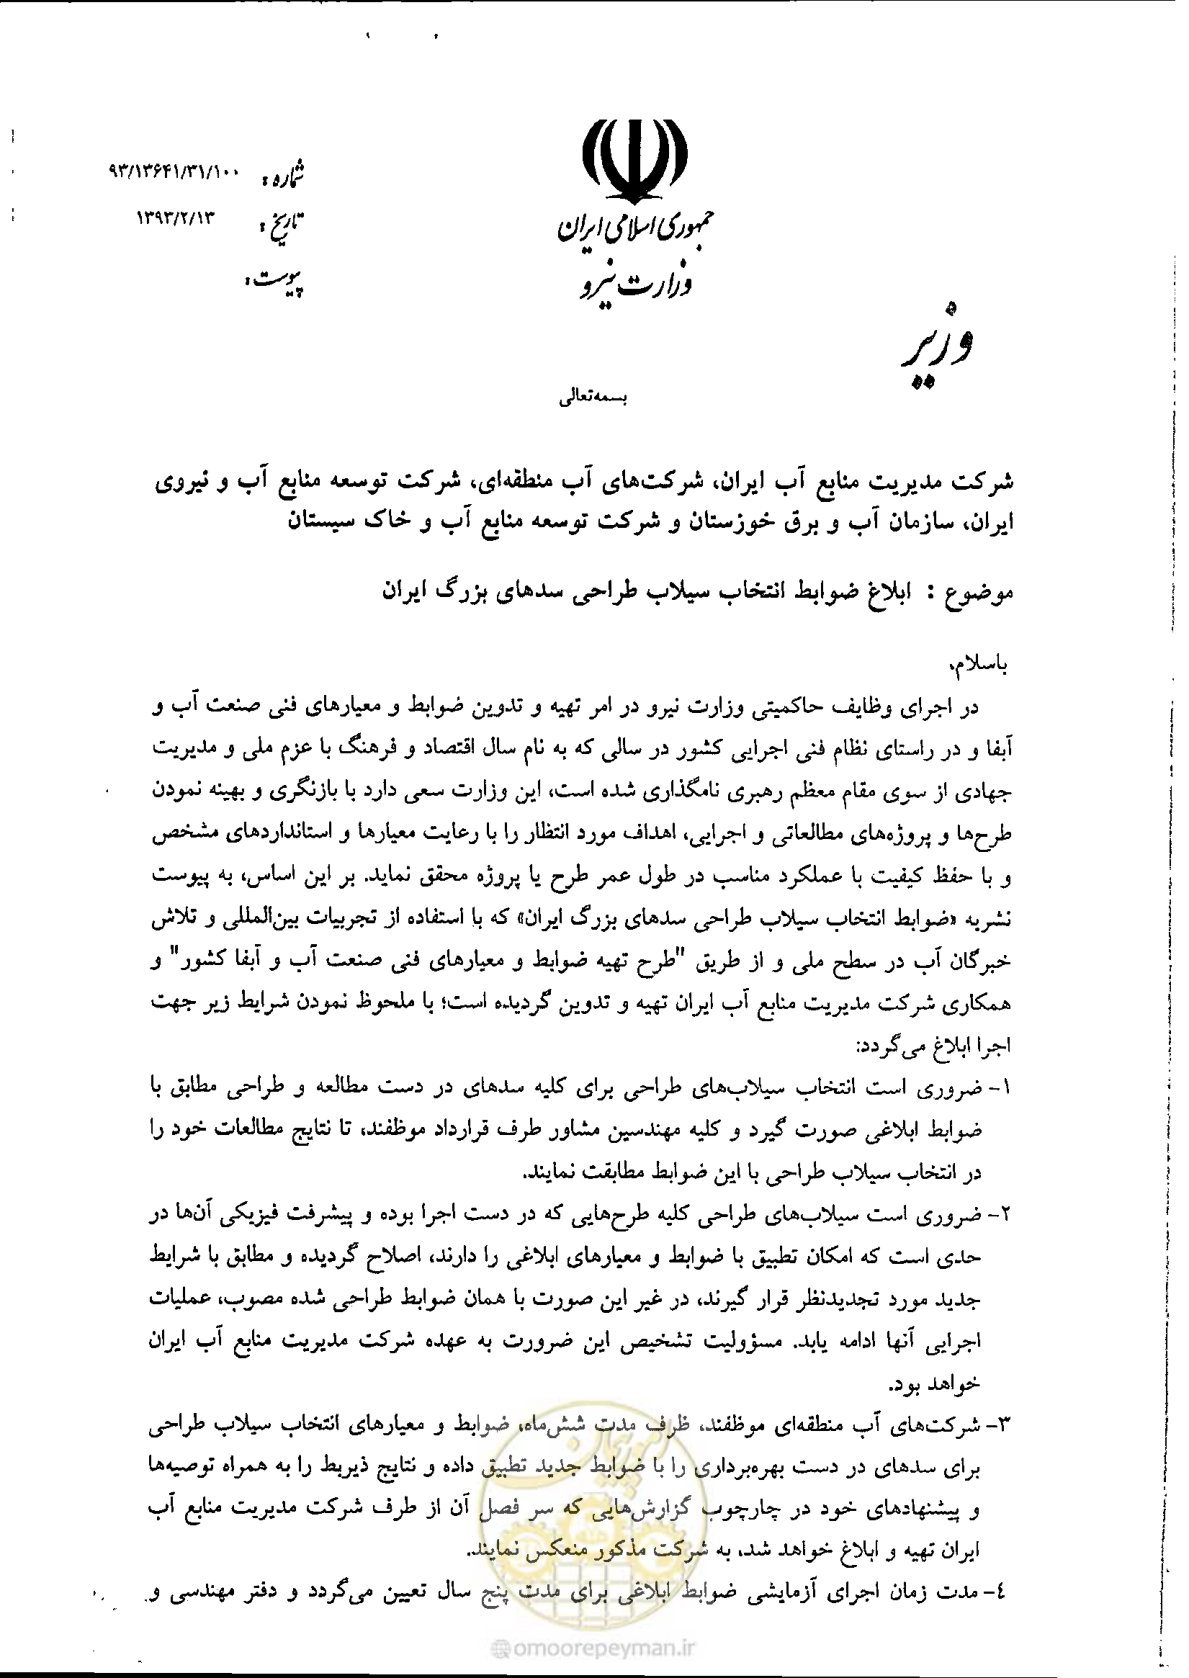 جمهوری اسلامی ایران
وزارت نیرو
وزیر
شماره : ۹۳/۱۳۶۴۱/۳۱/۱۰۰
تاریخ : ۱۳۹۳/۲/۱۳
پیوست:
بسمه‌تعالی
شرکت مدیریت منابع آب ایران، شرکت‌های آب منطقه‌ای، شرکت توسعه منابع آب و نیروی
ایران، سازمان آب و برق خوزستان و شرکت توسعه منابع آب و خاک سیستان
موضوع : ابلاغ ضوابط انتخاب سیلاب طراحی سدهای بزرگ ایران
باسلام،
در اجرای وظایف حاکمیتی وزارت نیرو در امر تهیه و تدوین ضوابط و معیارهای فنی صنعت آب و
آبفا و در راستای نظام فنی اجرایی کشور در سالی که به نام سال اقتصاد و فرهنگ با عزم ملی و مدیریت
جهادی از سوی مقام معظم رهبری نامگذاری شده است، این وزارت سعی دارد با بازنگری و بهینه نمودن
طرح‌ها و پروژه‌های مطالعاتی و اجرایی، اهداف مورد انتظار را با رعایت معیارها و استانداردهای مشخص
و با حفظ کیفیت با عملکرد مناسب در طول عمر طرح یا پروژه محقق نماید. بر این اساس، به پیوست
نشریه «ضوابط انتخاب سیلاب طراحی سدهای بزرگ ایران» که با استفاده از تجربیات بین‌المللی و تلاش
خبرگان آب در سطح ملی و از طریق "طرح تهیه ضوابط و معیارهای فنی صنعت آب و آبفا کشور" و
همکاری شرکت مدیریت منابع آب ایران تهیه و تدوین گردیده است؛ با ملحوظ نمودن شرایط زیر جهت
اجرا ابلاغ می‌گردد:
۱- ضروری است انتخاب سیلاب‌های طراحی برای کلیه سدهای در دست مطالعه و طراحی مطابق با
ضوابط ابلاغی صورت گیرد و کلیه مهندسین مشاور طرف قرارداد موظفند، تا نتایج مطالعات خود را
در انتخاب سیلاب طراحی با این ضوابط مطابقت نمایند.
۲- ضروری است سیلاب‌های طراحی کلیه طرح‌هایی که در دست اجرا بوده و پیشرفت فیزیکی آن‌ها در
حدی است که امکان تطبیق با ضوابط و معیارهای ابلاغی را دارند، اصلاح گردیده و مطابق با شرایط
جدید مورد تجدیدنظر قرار گیرند، در غیر این صورت با همان ضوابط طراحی شده مصوب، عملیات
اجرایی آنها ادامه یابد. مسؤولیت تشخیص این ضرورت به عهده شرکت مدیریت منابع آب ایران
خواهد بود.
۳- شرکت‌های آب منطقه‌ای موظفند، ظرف مدت شش‌ماه، ضوابط و معیارهای انتخاب سیلاب طراحی
برای سدهای در دست بهره‌برداری را با ضوابط جدید تطبیق داده و نتایج ذیربط را به همراه توصیه‌ها
و پیشنهادهای خود در چارچوب گزارش‌هایی که سر فصل آن از طرف شرکت مدیریت منابع آب
ایران تهیه و ابلاغ خواهد شد، به شرکت مذکور منعکس نمایند.
٤- مدت زمان اجرای آزمایشی ضوابط ابلاغی برای مدت پنج سال تعیین می‌گردد و دفتر مهندسی و
امور پیمان
omoorepeyman.ir